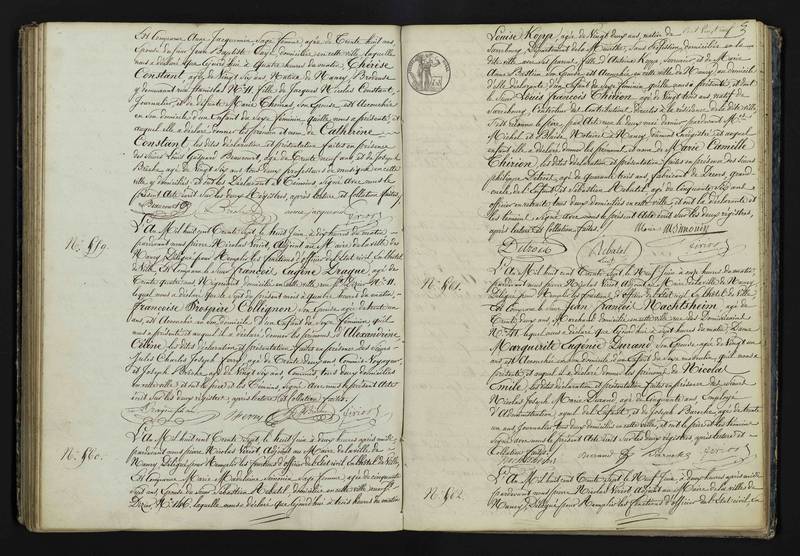 Est Comparue Anne Jacquemin Sage femme, agée de Trente huit ans,
Epouse du sieur Jean Baptiste domiciliée en cette ville, laquelle
nous a déclaré que à quatre heures du matin, Thérèse
Constant, agée de Vingt Six ans Native de Nancy, Brodeuse
y demeurant rue Stanislas N° 11, fille de Jacques Nicolas Constant,
Journalier, et de défunte Marie Thomas son Epouse, est Accouchée
en son domicile d'un Enfant du sexe féminin, qu'elle nous a présenté, et
auquel elle a déclaré donner les prénoms et nom de Cathérine
Constant, les dites déclaration et présentation faites en présence
des Sieurs Louis Gaspard agé de Trente neuf ans, et de Joseph
agé de Vingt Six ans tous deux professeurs de musique en cette
ville y domiciliés, et ont les Déclarante et Témoins, Signé avec nous le
présent Acte écrit sur les deux Registres, après lecture et Collation faites,
anne jacquemin
N° 559.
L'An Mil huit cent Trente Sept, le huit Juin, à dix heures du matin
pardevant nous pierre Nicolas Vériot, Adjoint au Maire de la ville de
Nancy, Délégué pour Remplir les fonctions d'officier de l'état civil, En l'hôtel
de Ville, Est Comparu le Sieur François Eugène Dragne, agé de
Trente quatre ans, Négociant domicilié en cette ville N° 11,
lequel nous a déclaré que le Sept du présent mois à quatre heures du matin,
Françoise Prospère Collignon, son Epouse, agée de trente un
ans, est Accouchée en son domicile, d'un Enfant du sexe féminin, qu'il
nous a présenté, et auquel il a déclaré donner les prénoms d'Alexandrine
Céline, les dites déclaration et présentation faites en présence des Sieurs
Jules Charles Joseph agé de Trente deux ans, Commis Voyageur,
et Joseph agé de Vingt Six ans, Commis, tous deux domiciliés
en cette ville, et ont le père et les Témoins, Signé avec nous le présent Acte
écrit sur les deux registres, après lecture et Collation faites.
N° 560.
L'An Mil huit cent Trente Sept, le huit Juin à deux heures après midi,
pardevant nous pierre Nicolas Vériot Adjoint au Maire de la ville de
Nancy, Délégué pour Remplir les fonctions d'officier de l'état civil, En l'hôtel de Ville,
Est Comparue Marie Madeleine Simonin Sage femme, agée de cinquante
sept ans, Epouse du Sieur Sébastien Rebatel, domiciliée en cette ville
N° 146, laquelle nous a déclaré que à trois heures du matin
Louise Kopp, agée de Vingt deux ans, native de
Sarrebourg, Département de la Meurthe, Sans profession, domiciliée en la
dite ville fille d'Antoine Kopp, et de Marie
Anne son Epouse, est Accouchée en cette ville de Nancy, au domicile
d'elle déclarante, d'un Enfant du Sexe féminin, qu'elle nous a présenté, et dont
le Sieur Louis François Thirion, agé de Vingt huit ans, natif de
Sarrebourg, des Contributions à la résidence de la dite ville,
s'est reconnu le père, par Acte reçu le deux mai dernier, pardevant Me
Michel et Notaires à Nancy, dûment Enregistré, et auquel
enfant elle a déclaré donner les prénoms, et nom de Marie Camille
Thirion, les dites déclaration et présentation faites en présence des Sieurs
philippe Detroit, agé de quarante trois ans, fabricant de
oncle de l'Enfant, et Sébastien Rebatel, agé de Cinquante Six ans
officier en retraite, tous deux domiciliés en cette ville, et ont la déclarante et
les témoins Signé avec nous le présent Acte écrit sur les deux registres,
après lecture et Collation faites.
Marie M Simonin
Detroit Rebatel
N° 561.
L'An Mil huit cent Trente Sept, le Neuf Juin, à onze heures du matin,
pardevant nous pierre Nicolas Vériot Adjoint au Maire de la ville de Nancy,
Délégué pour Remplir les fonctions d'officier de l'état civil En l'hôtel de Ville,
Est Comparu le Sieur Jean François Hachtsheim agé de
Trente deux ans, Marchand domicilié en cette ville rue des Dominicains
N° lequel nous a déclaré que à sept heures du matin, Dame
Marguerite Eugénie Durand son Epouse, agée de vingt un
ans est Accouchée en son domicile d'un Enfant du Sexe masculin, qu'il nous a
présenté et auquel il a déclaré donner les prénoms de Nicolas
Emile, les dites déclaration et présentation faites en présence des Sieurs
Nicolas Joseph Marie Durand, agé de Cinquante ans, Employé
d'Administration, ayeul de l'Enfant, et de Joseph agé de trente
un ans, Journalier tous deux domiciliés en cette ville, et ont le père et les témoins
Signé avec nous le présent Acte écrit sur les deux registres après lecture et
Collation faites.
Durand
N° 562.
L'An Mil huit cent Trente Sept le Neuf Juin, à deux heures après midi
pardevant nous pierre Nicolas Vériot Adjoint au Maire de la ville de
Nancy, Délégué pour Remplir les fonctions d'officier de l'état civil, En